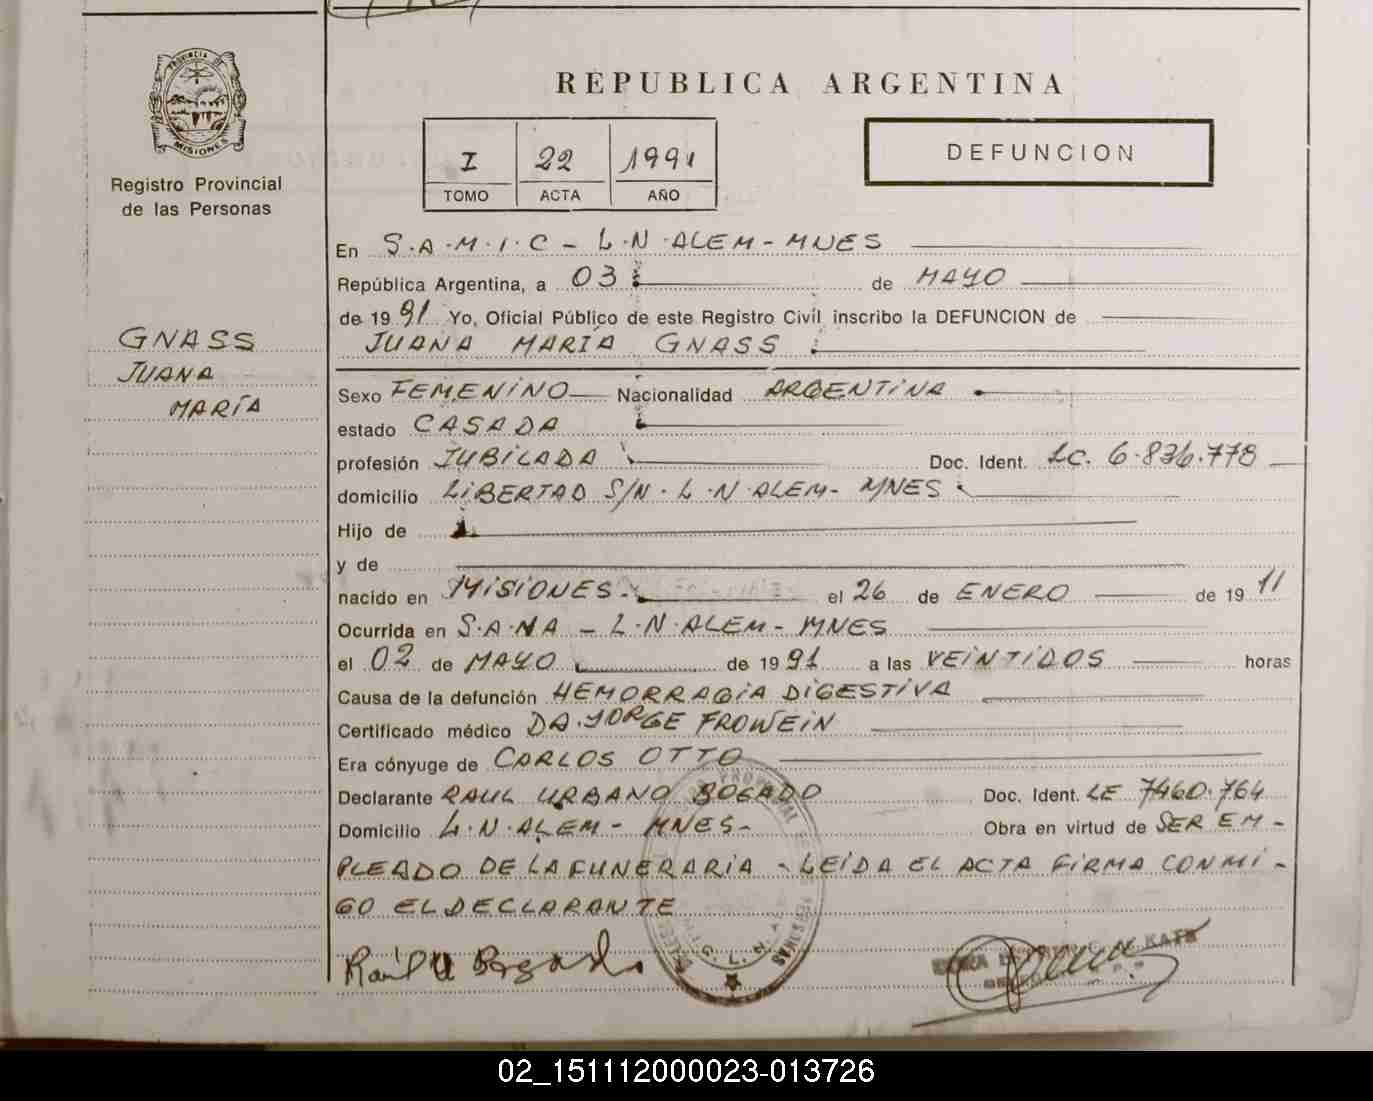 PROVINCIA DE
MISIONES
Registro Provincial
de las Personas
GNASS
JUANA
MARÍA
REPUBLICA ARGENTINA
I 22 1991
TOMO ACTA AÑO
DEFUNCION
En S.A.M.I.C - L.N.ALEM - MNES
República Argentina, a 03 de MAYO
de 1991 Yo, Oficial Público de este Registro Civil inscribo la DEFUNCION de
JUANA MARÍA GNASS
Sexo FEMENINO Nacionalidad ARGENTINA
estado CASADA
profesión JUBILADA Doc. Ident. LC. 6.836.778
domicilio LIBERTAD S/N. L.N ALEM - MNES
Hijo de
y de
nacido en MISIONES. el 26 de ENERO de 1911
Ocurrida en S.A.M.A - L.N.ALEM - MNES
el 02 de MAYO de 1991 a las VEINTIDOS horas
Causa de la defunción HEMORRAGIA DIGESTIVA
Certificado médico DR. JORGE FROWEIN
Era cónyuge de CARLOS OTTO
Declarante RAUL URBANO BOGADO Doc. Ident. LE 7460.764
Domicilio L.N.ALEM - MNES- Obra en virtud de SER EM-
PLEADO DE LA FUNERARIA - LEÍDA EL ACTA FIRMA CONMI-
GO EL DECLARANTE
Raúl U Bogado
KATZ
02_151112000023-013726